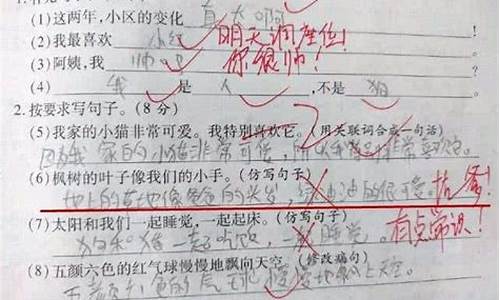 (1)这两年,小区的变化 真大啊
(2)我最喜欢 小红 明天调座位!
(3)阿姨,我 帅吧 你很帅!
(4) 我 是 人 ,不是 狗
2.按要求写句子。(8分)
(5)我家的小猫非常可爱。我特别喜欢它。(用关联词合成一句话)
因为我家的小猫非常可爱,所以我非常喜欢它。
(6)枫树的叶子像我们的小手。(仿写句子)
地上的草地像爸爸的头发,绿油油的很可爱。
(7)太阳和我们一起睡觉,一起起床。(仿写句子)
有点常识!
一起吃饭,一起睡觉。
(8)五颜六色的红气球慢慢地飘向天空。(修改病句)
五颜六色的气球慢慢地飘上天空。